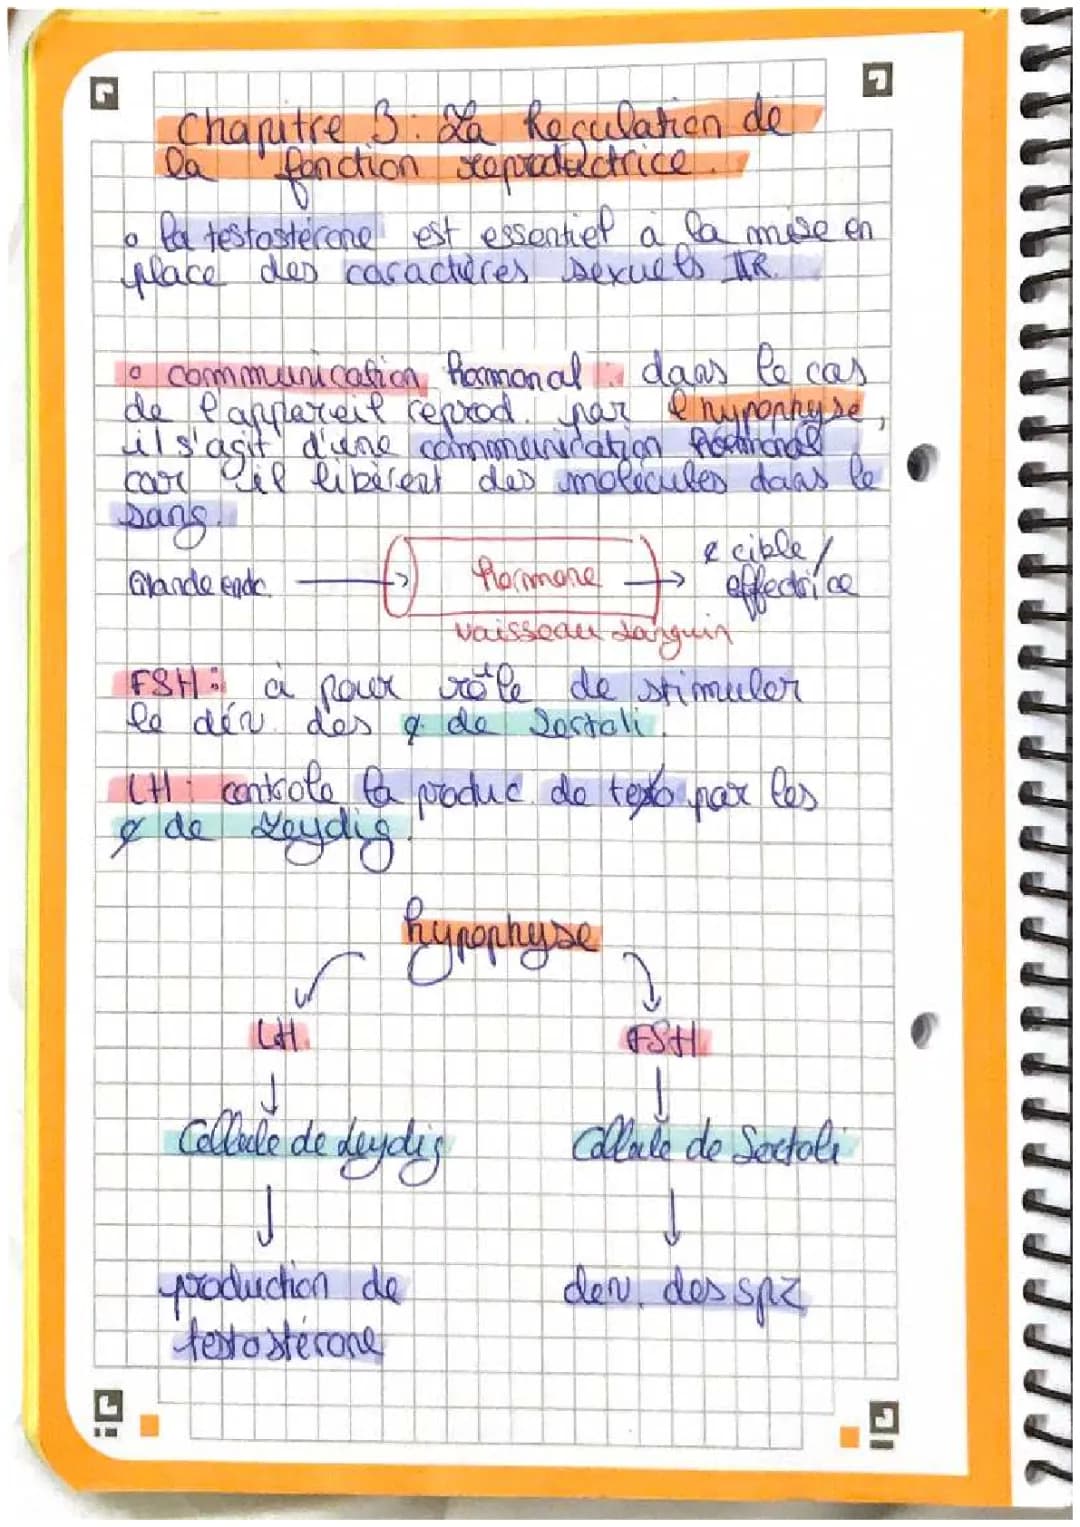 Chapitre 3 : La Régulation de
la fonction reproductrice.
o la testostérone est essentiel à la mise en
place des caractères sexuels IIR.
o communication hormonal : dans le cas
de l'appareil reprod. par l'hypophyse,
il s'agit d'une communication hormonal
car il libèrent des molécules dans le
sang.
Glande endo. → hormone → ¢ cible /
effectrice
vaisseau sanguin
FSH : à pour rôle de stimuler
le dév. des ¢ de Sertoli.
LH : controle la produc. de testo par les
¢ de Leydig.
hypophyse
LH. FSH.
Cellule de Leydig Cellule de Sertoli
production de dev. des spz
testostérone